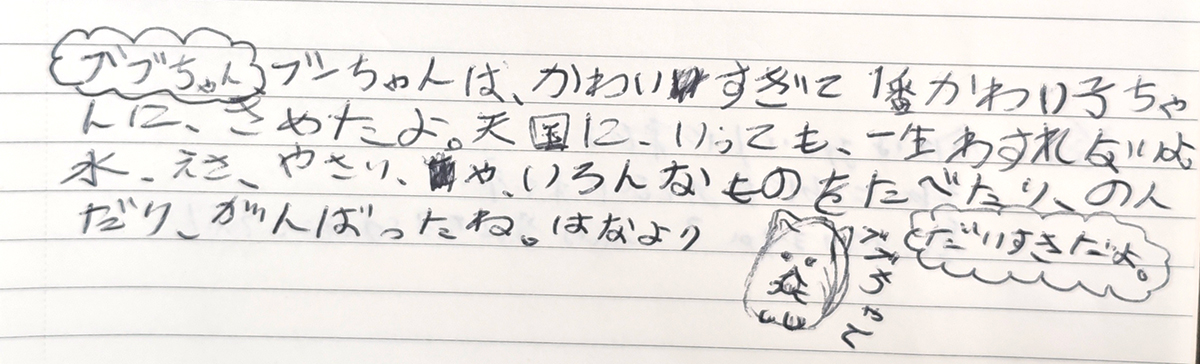 ブブちゃん ブンちゃんは、かわいすぎて 1番かわいい子ちゃ
んに、きめたよ。天国に、いっても、一生わすれないよ。
水、えさ、やさい、や、いろんなものをたべたり、のん
だり、がんばったね。はなより
ブブちゃん
だいすきだよ。